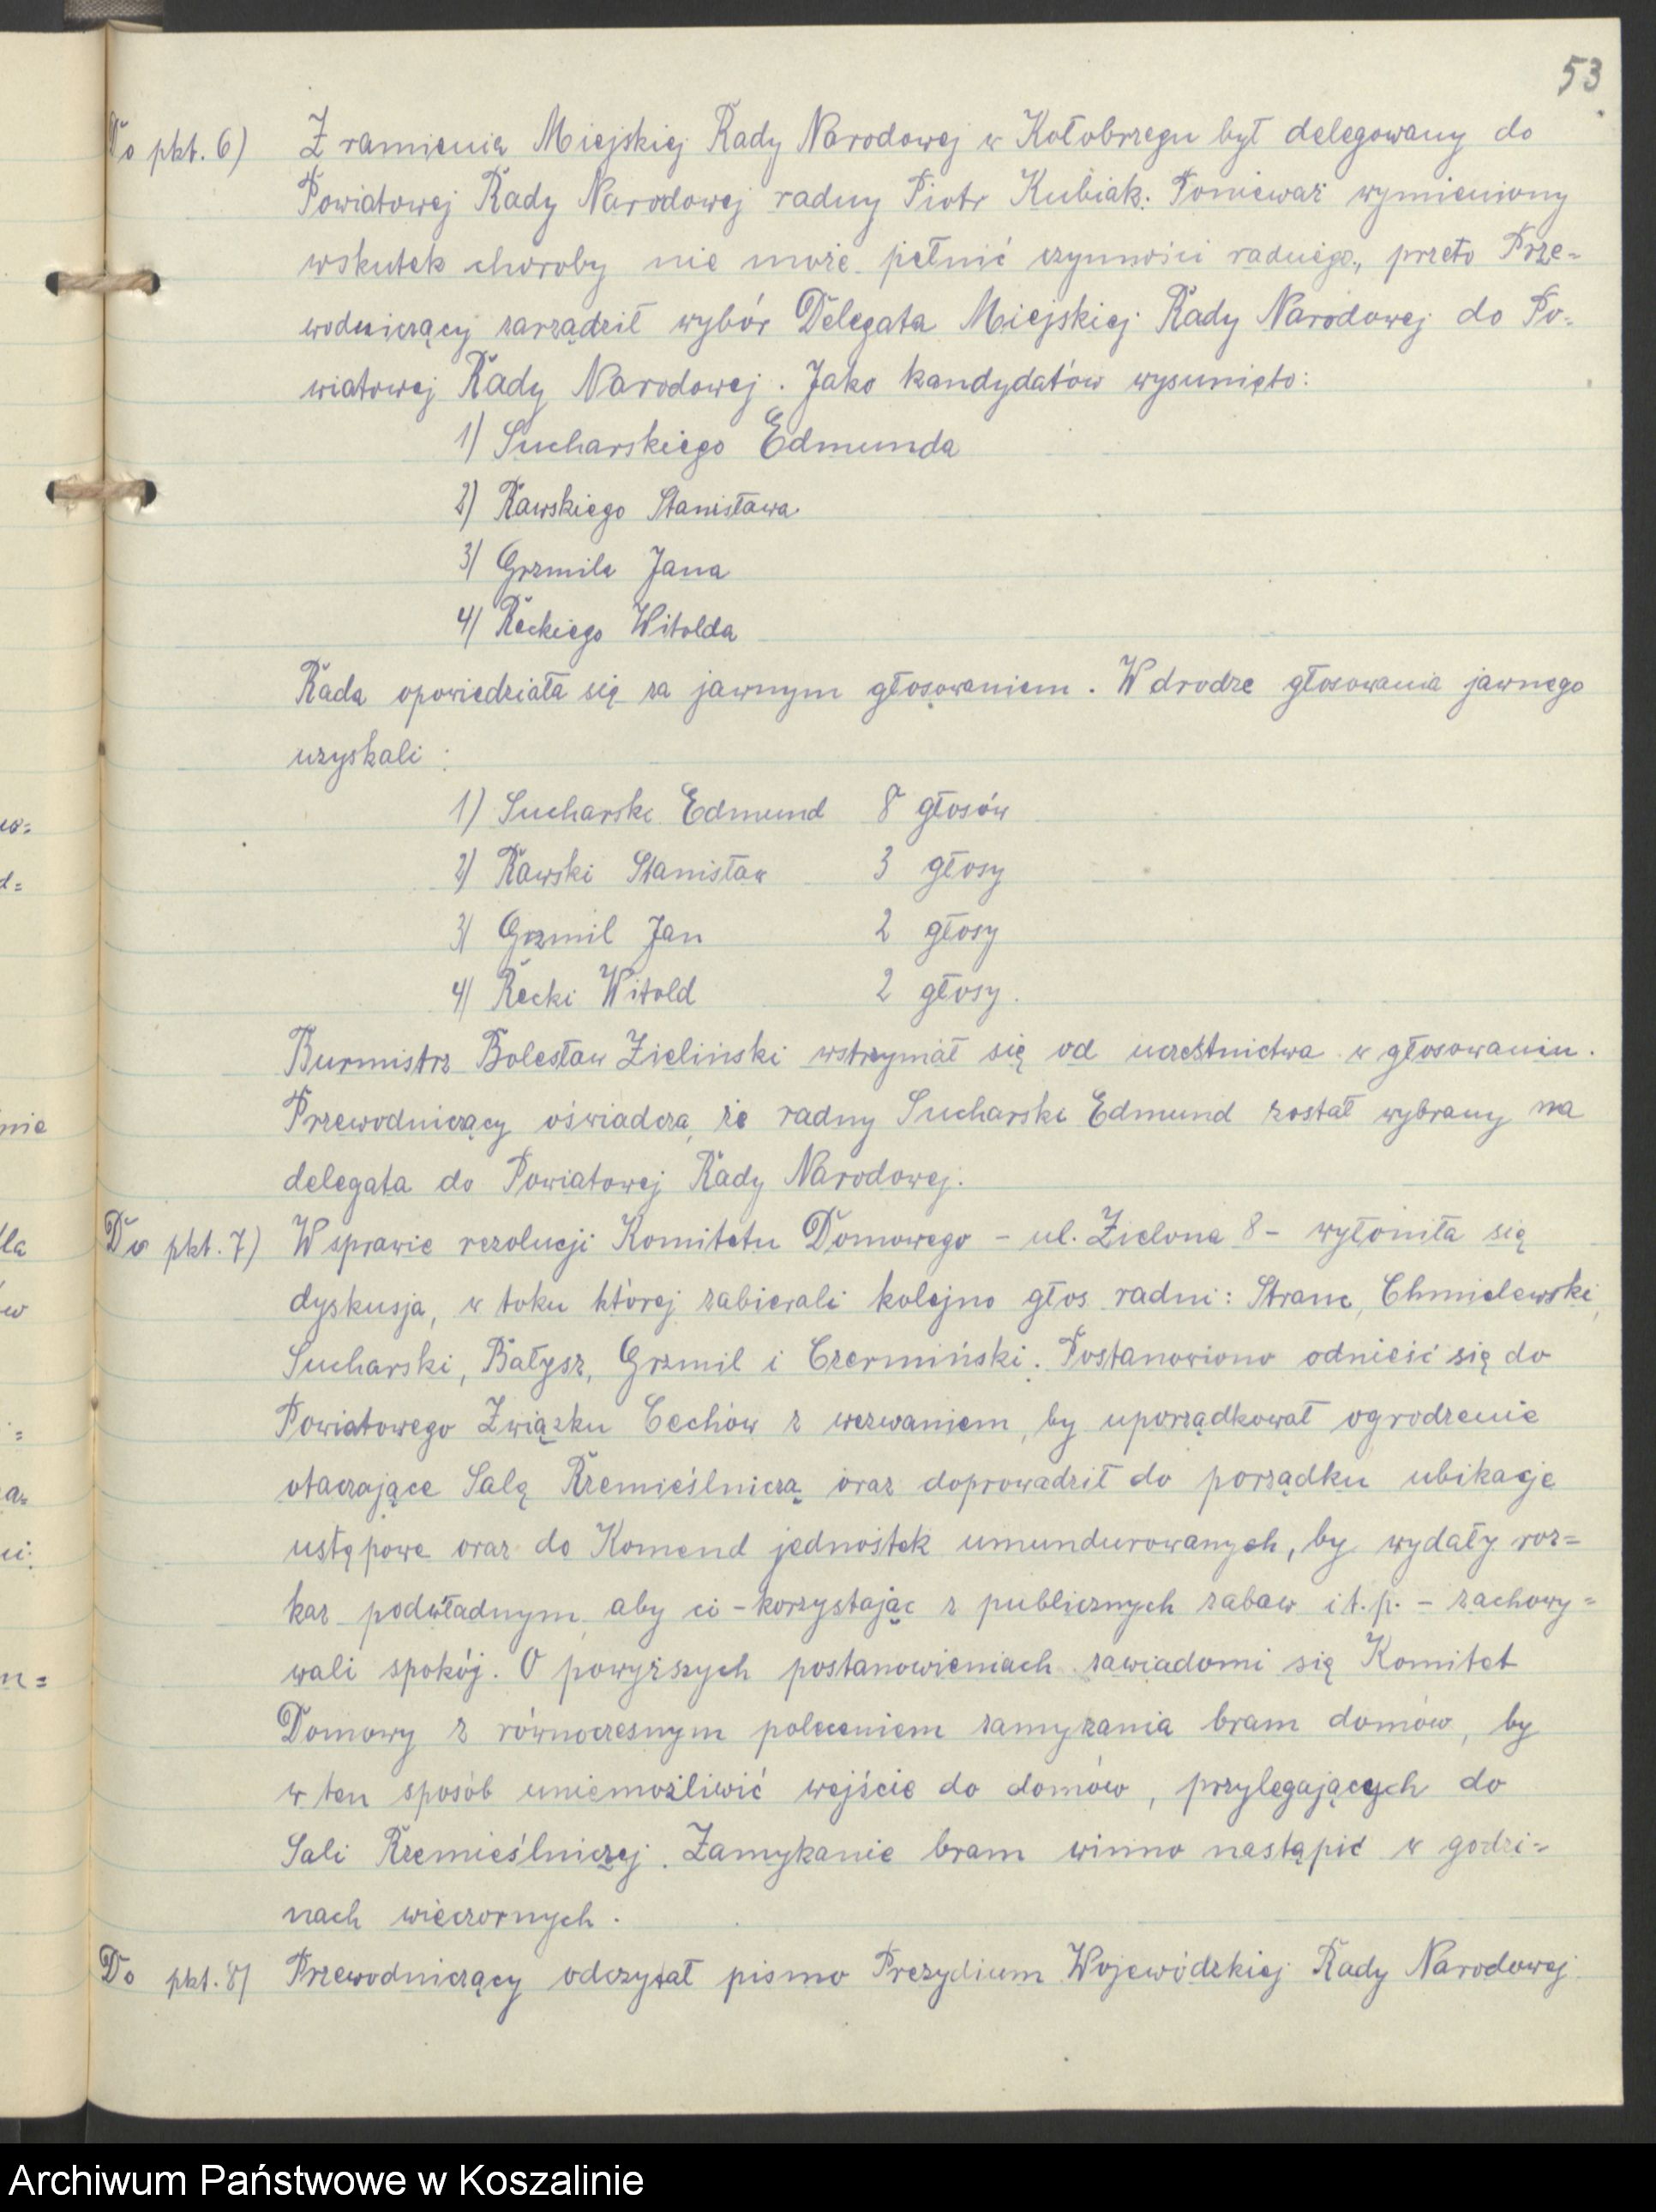 53
Do pkt. 6) Z ramienia Miejskiej Rady Narodowej w Kołobrzegu był delegowany do
Powiatowej Rady Narodowej radny Piotr Kubiak. Ponieważ wymieniony
wskutek choroby nie może pełnić czynności radnego, przeto Prze=
wodniczący zarządził wybór Delegata Miejskiej Rady Narodowej do Po=
wiatowej Rady Narodowej. Jako kandydatów wysunięto:
1) Sucharskiego Edmunda
2) Rawskiego Stanisława
3) Grzmila Jana
4) Reckiego Witolda
Rada opowiedziała się za jawnym głosowaniem. W drodze głosowania jawnego
uzyskali:
1) Sucharski Edmund 8 głosów
2) Rawski Stanisław 3 głosy
3) Grzmil Jan 2 głosy
4) Recki Witold 2 głosy.
Burmistrz Bolesław Zieliński wstrzymał się od uczestnictwa w głosowaniu.
Przewodniczący oświadcza, że radny Sucharski Edmund został wybrany na
delegata do Powiatowej Rady Narodowej.
Do pkt. 7) W sprawie rezolucji Komitetu Domowego - ul. Zielona 8 - wyłoniła się
dyskusja, w toku której zabierali kolejno głos radni: Stranc, Chmielewski,
Sucharski, Bałysz, Grzmil i Czermiński. Postanowiono odnieść się do
Powiatowego Związku Cechów z wezwaniem, by uporządkował ogrodzenie
otaczające Salę Rzemieślniczą oraz doprowadził do porządku ubikacje
ustępowe oraz do Komend jednostek umundurowanych, by wydały roz=
kaz podwładnym, aby ci - korzystając z publicznych zabaw i t. p. - zachowy=
wali spokój. O powyższych postanowieniach zawiadomi się Komitet
Domowy z równoczesnym poleceniem zamykania bram domów, by
w ten sposób uniemożliwić wejście do domów, przylegających do
Sali Rzemieślniczej. Zamykanie bram winno nastąpić w godzi=
nach wieczornych.
Do pkt. 8) Przewodniczący odczytał pismo Prezydium Wojewódzkiej Rady Narodowej
Archiwum Państwowe w Koszalinie